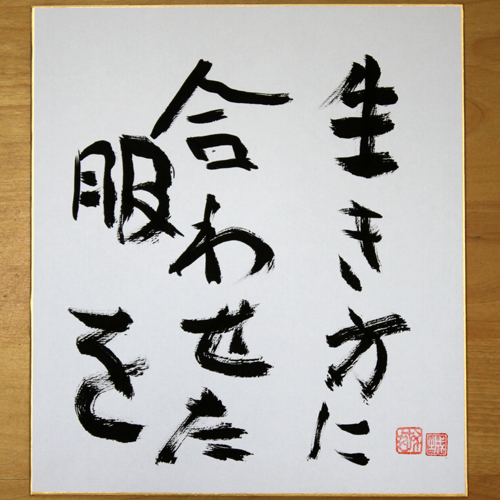 生き方に
合わせた
服を